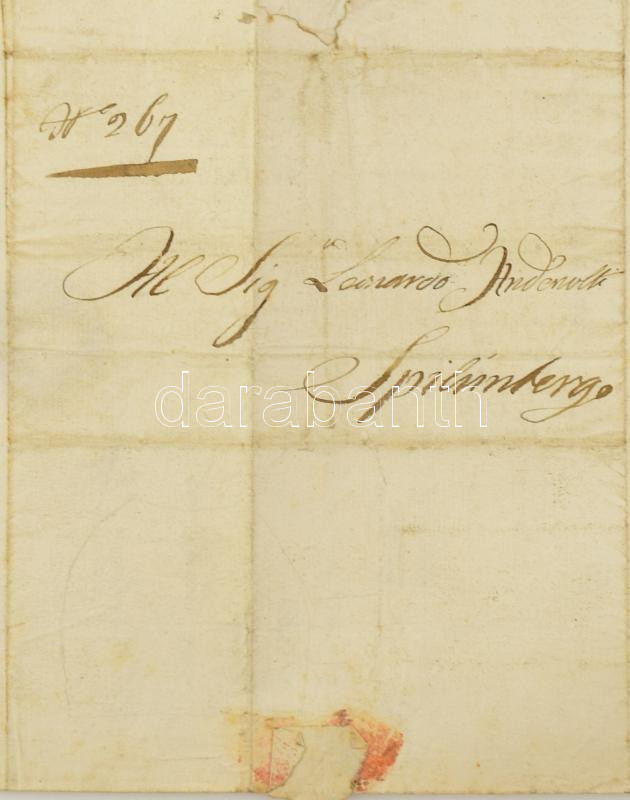 Nº 267
Al Sigʳ Leonardo Andervolti
Spilimbergo
darabanth